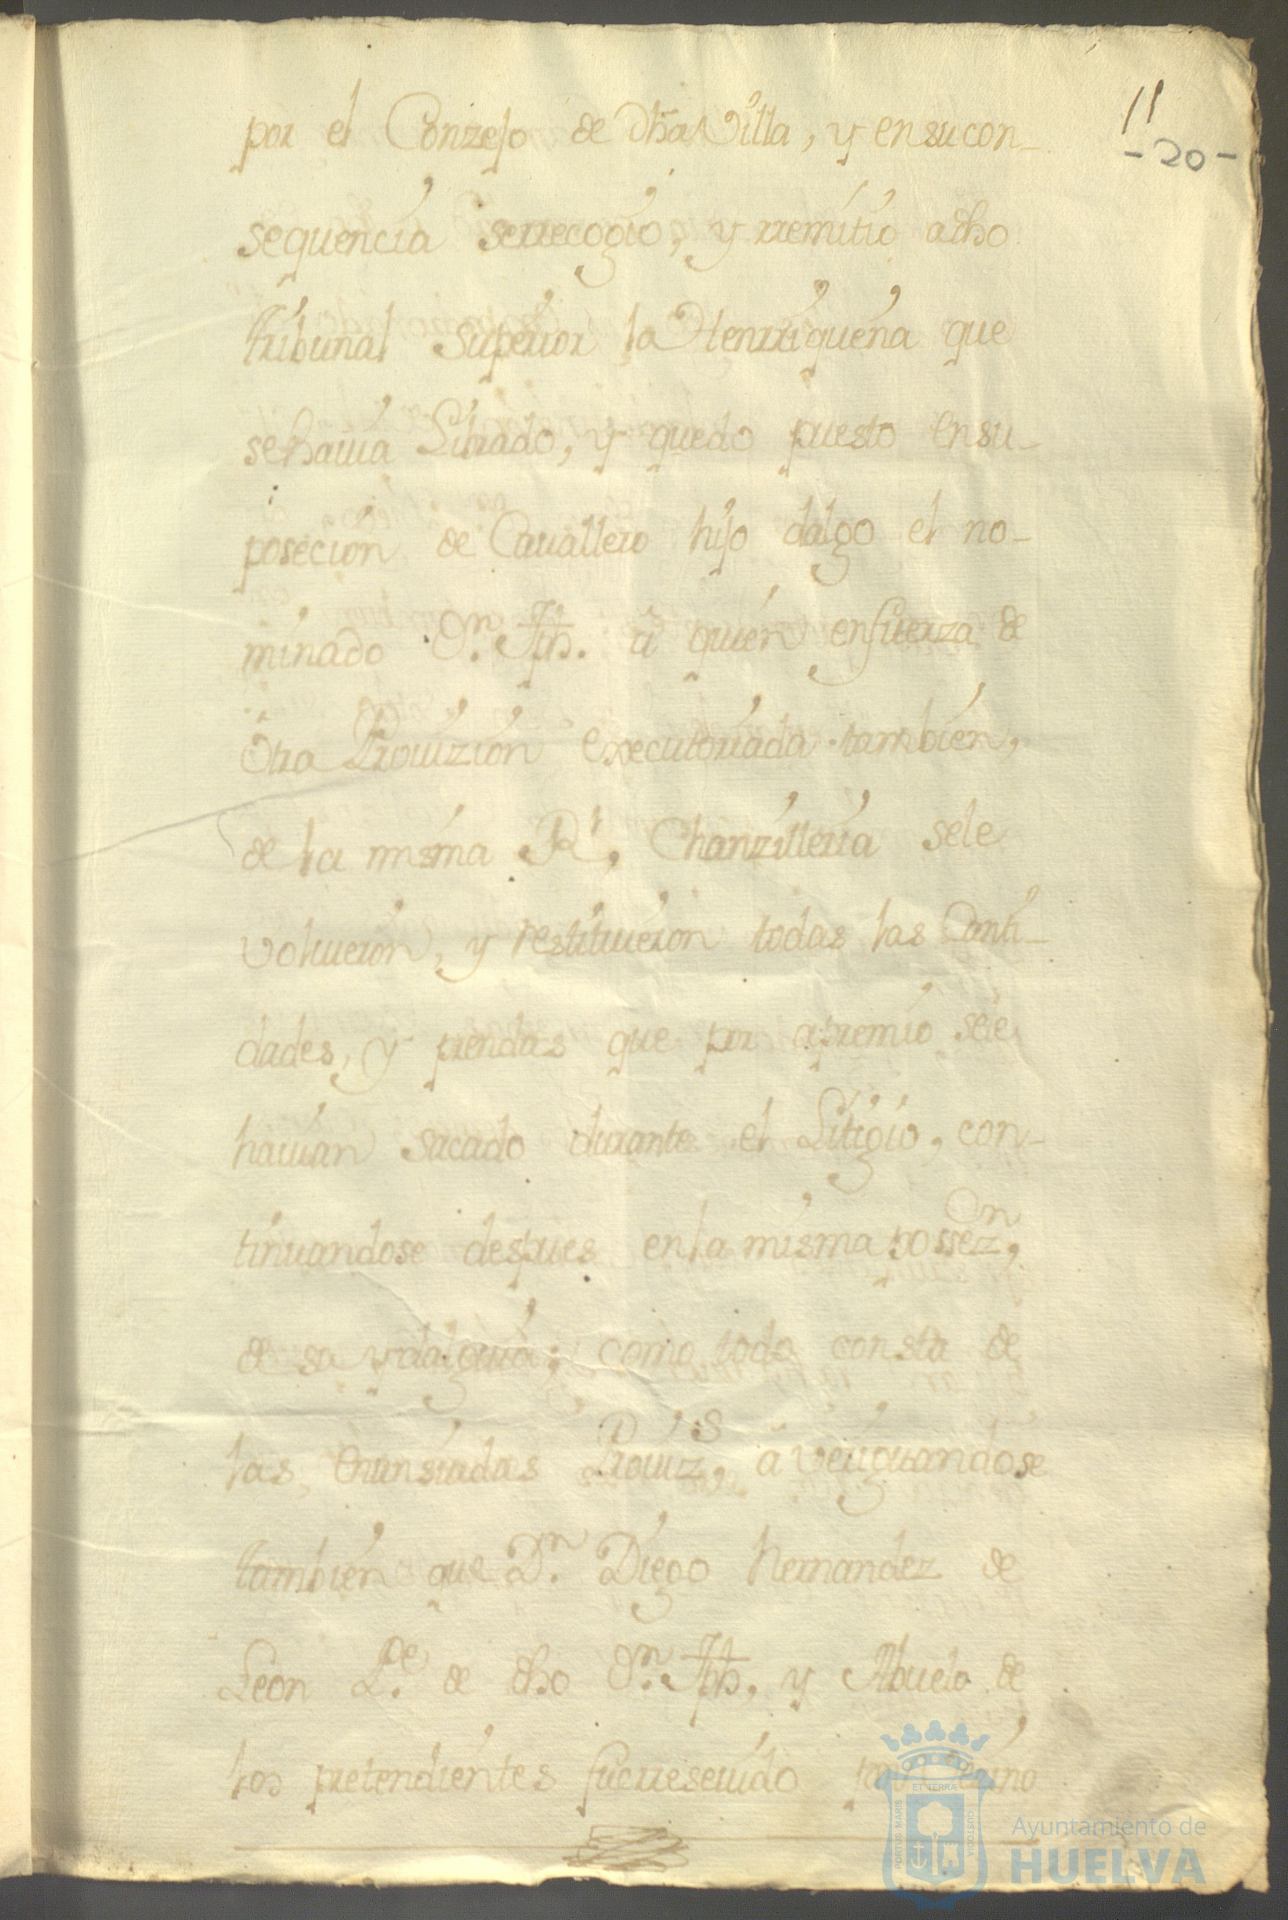 11
-20-
por el Conzejo de dha Villa, y ensucon-
sequencia serrecogio, y rremitio adho
tribunal Superior la Henrriqueña que
sehavia Librado, y quedo puesto ensu-
posecion de Cavallero hijo dalgo el no-
minado Dn. Jph. a quien enfuerza de
otra Provizion executoriada tambien,
de la misma Rl. Chanzilleria sele
volvieron, y restituieron todas las Canti-
dades, y prendas que por apremio sele
havian sacado durante el Litigio, con-
tinuandose despues enla misma possezn,
de su ydalguia; como todo consta de
las, enunsiadas Provizs, averiguandose
tambien que Dn. Diego Hernandez de
Leon Pe. de dho Dn. Jph. y Abuelo de
los pretendientes fuerreseuido
Ayuntamiento de
HUELVA
PORTUS MARIS
ET TERRÆ
CUSTODIA